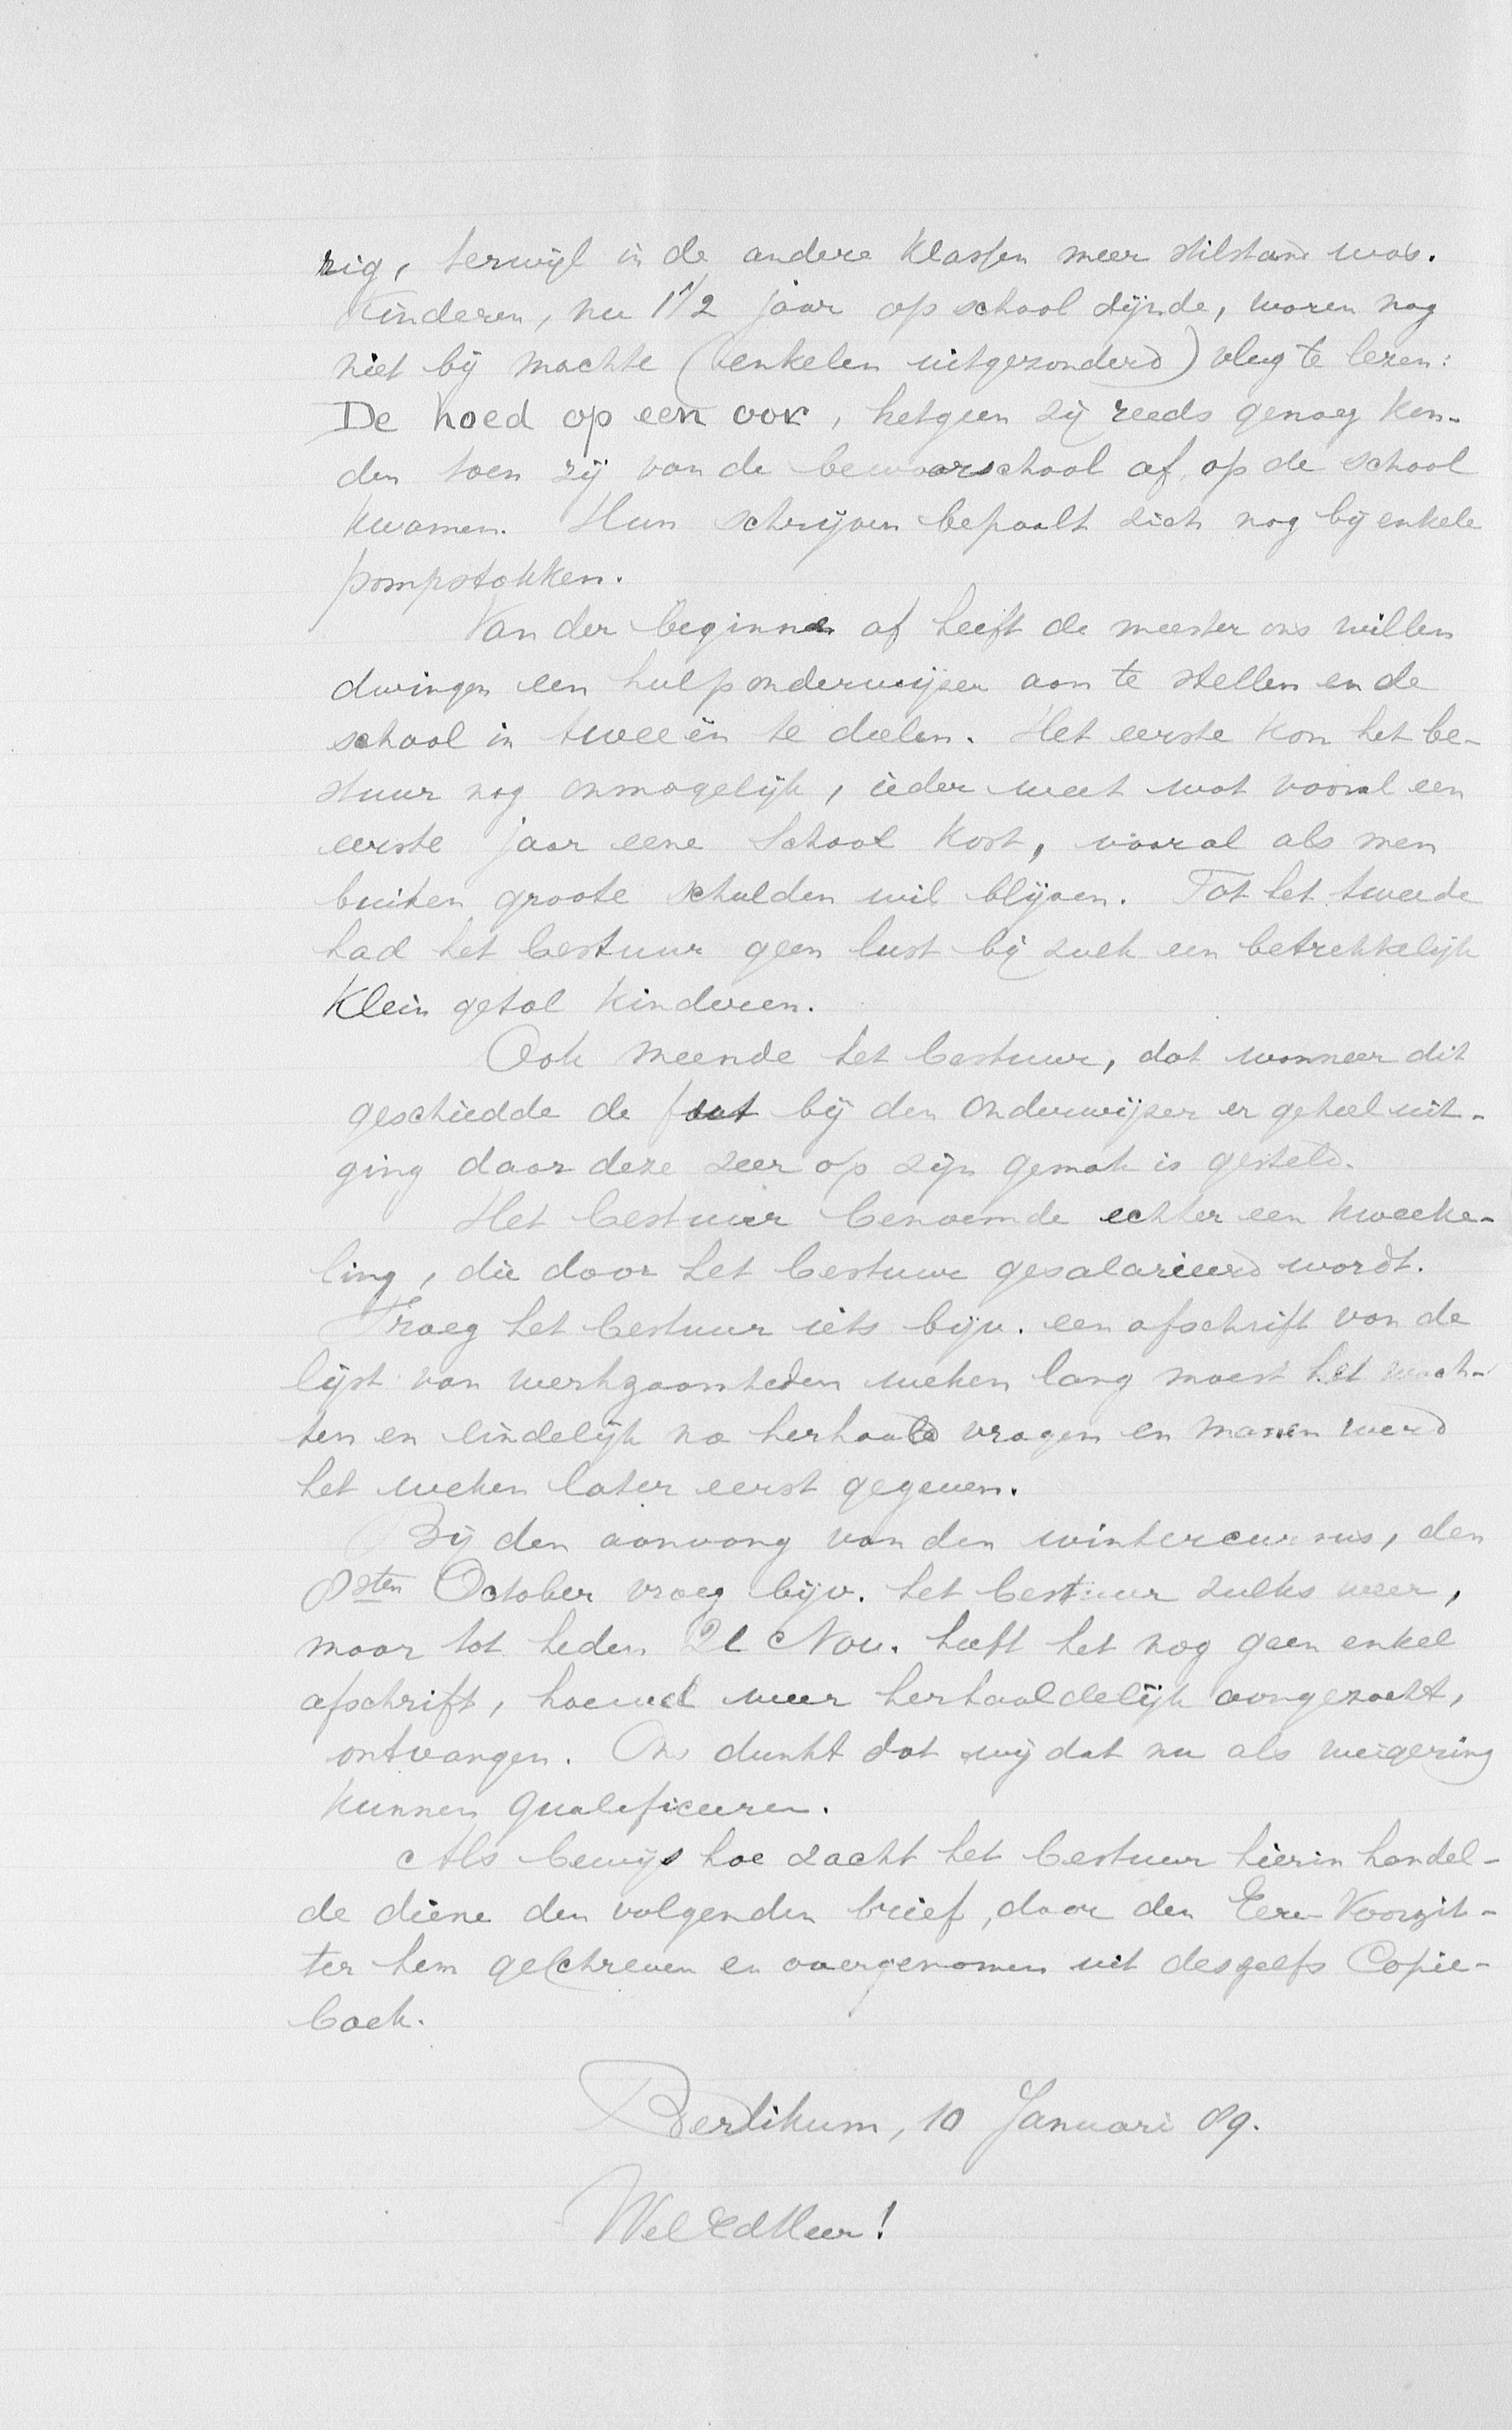 zig, terwijl in de andere klassen meer stilstand was.
Kinderen, nu 1 1/2 jaar op school zijnde, waren nog
niet bij machte (enkelen uitgezonderd) vlug te lezen:
De hoed op een oor, hetgeen zij reeds genoeg ken-
den toen zij van de bewaarschool af op de school
kwamen. Hun schrijven bepaalt zich nog bij enkele
pompstokken.
Van der beginne af heeft de meester ons willen
dwingen een hulponderwijzer aan te stellen en de
school in tweeën te deelen. Het eerste kon het be-
stuur nog onmogelijk, ieder weet wat vooral een
eerste jaar eene school kost, vooral als men
buiten groote schulden wil blijven. Tot het tweede
had het bestuur geen lust bij zulk een betrekkelijk
klein getal kinderen.
Ook meende het bestuur, dat wanneer dit
geschiedde de fout bij den onderwijzer er geheel uit-
ging daar deze zeer op zijn gemak is gesteld.
Het bestuur benoemde echter een kweeke-
ling, die door het bestuur gesalarieerd wordt.
Vroeg het bestuur iets bijv. een afschrift van de
lijst van werkzaamheden weken lang moest het wach-
ten en eindelijk na herhaald vragen en manen werd
het weken later eerst gegeven.
Bij den aanvang van den wintercursus, den
8sten October vroeg bijv. het bestuur zulks weer,
maar tot heden 21 Nov. heeft het nog geen enkel
afschrift, hoewel weer herhaaldelijk aangezocht,
ontvangen. Ons dunkt dat wij dat nu als weigering
kunnen qualificeeren.
Als bewijs hoe zacht het bestuur hierin handel-
de diene den volgenden brief, door den Eere-Voorzit-
ter hem geschreven en overgenomen uit deszelfs Copie-
boek.
Berlikum, 10 Januari 89.
WelEdHeer!